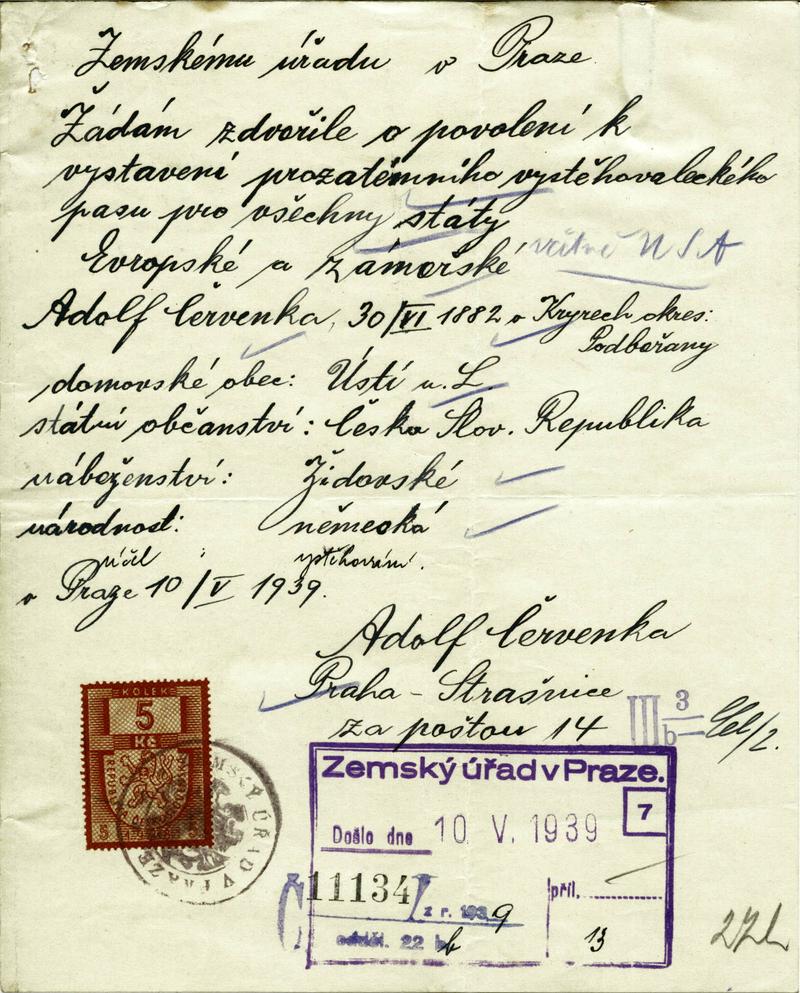 Zemskému úřadu v Praze
Žádám zdvořile o povolení k
vystavení prozatémního vystěhovaleckého
pasu pro všechny státy
Evropské a zámořské vžitně USA
Adolf Červenka, 30/VI 1882 v Kryrech okres:
Podbořany
domovské obec: Ústí n. L.
státní občanství: Česko Slov. Republika
náboženství: Židovské
národnost: německá
účel : vystěhování.
v Praze 10/V 1939.
Adolf Červenka
Praha - Strašnice
za poštou 14
III 3
b
KOLEK
5
Kč
ZEMSKÝ ÚŘAD V PRAZE
Zemský úřad v Praze.
7
Došlo dne 10 V. 1939
11134 z r. 1939
příl.
odděl. 22 b
13